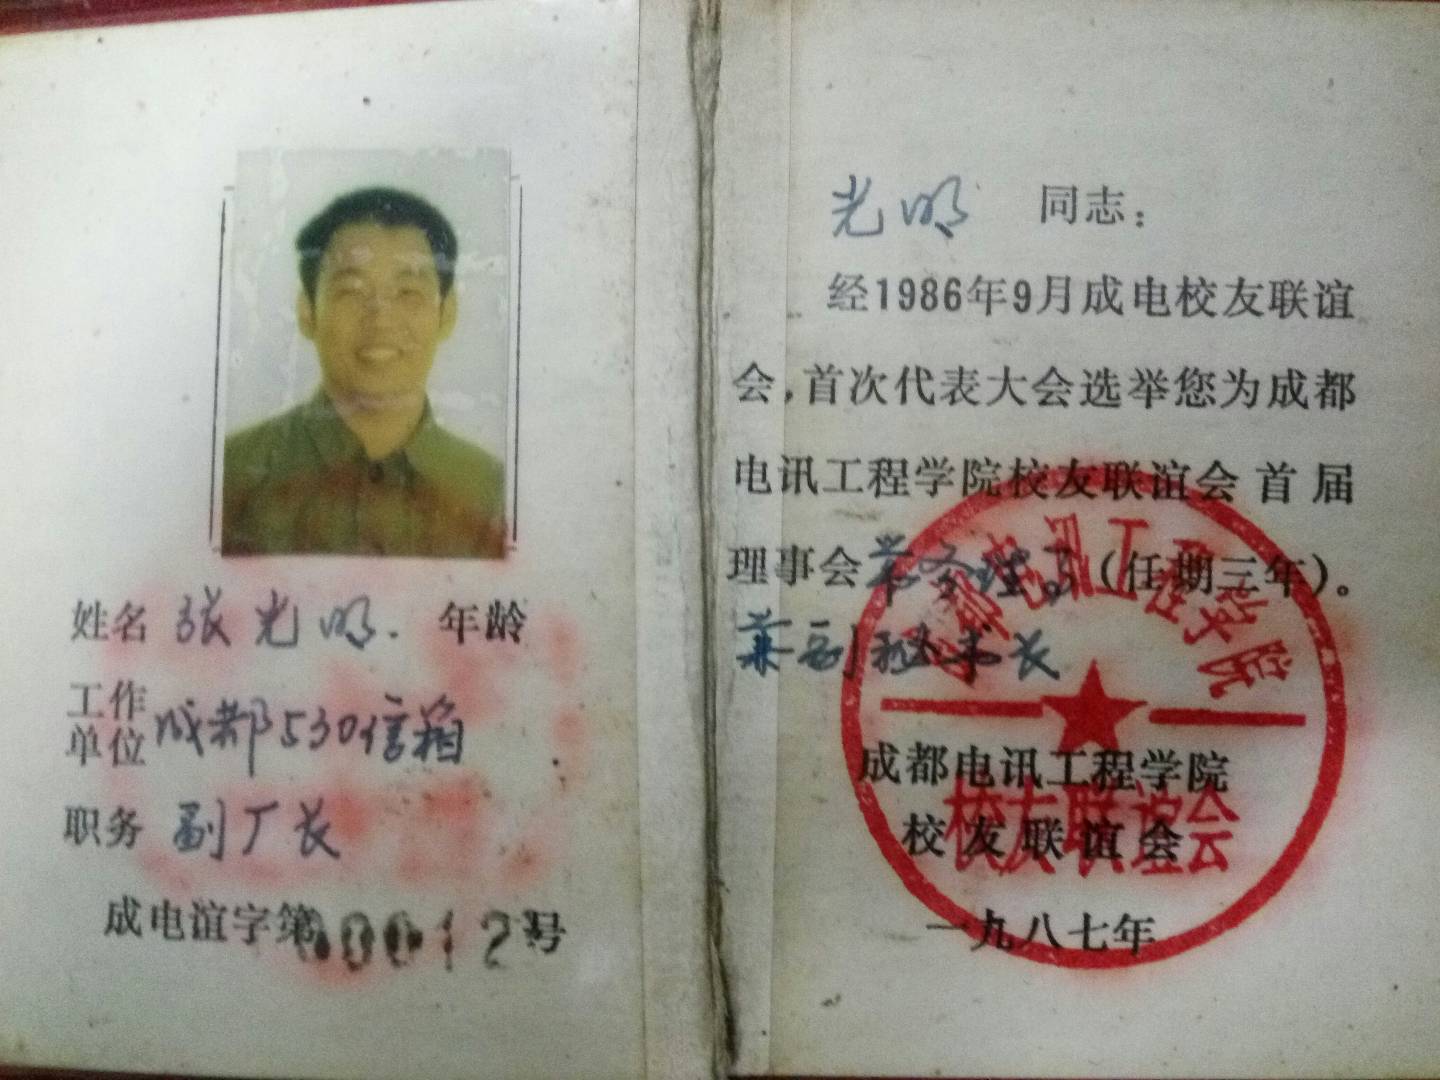 姓名 张光明. 年龄
工作
单位 成都530信箱
职务 副厂长
成电谊字第00012号
光明 同志：
经1986年9月成电校友联谊
会,首次代表大会选举您为成都
电讯工程学院校友联谊会首届
理事会常务理事(任期三年)。
兼副秘书长
成都电讯工程学院
成都电讯工程学院
校友联谊会
校友联谊会
一九八七年